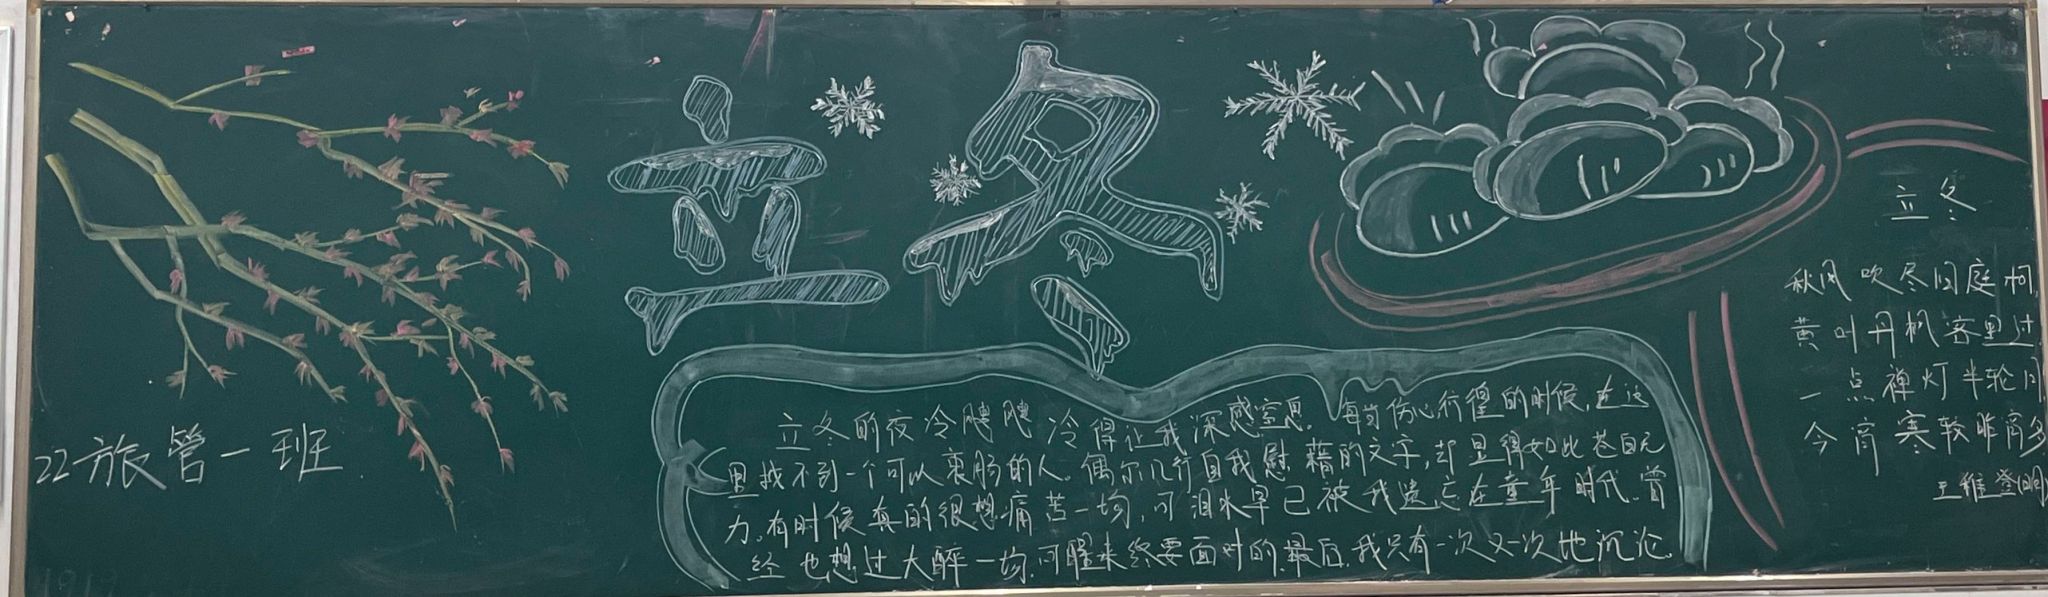 立冬
22旅管一班
立冬的夜冷飕飕冷得让我深感窒息。每当伤心彷徨的时候,在这
里找不到一个可以衷肠的人。偶尔几行自我慰藉的文字,却显得如此苍白无
力。有时候真的很想痛苦一场,可泪水早已被我遗忘在童年时代。曾
经也想过大醉一场,可醒来终要面对的。最后,我只有一次又一次地沉沦
立冬
秋风吹尽旧庭柯,
黄叶丹枫客里过
一点禅灯半轮月
今宵寒较昨宵多
王稚登(明)